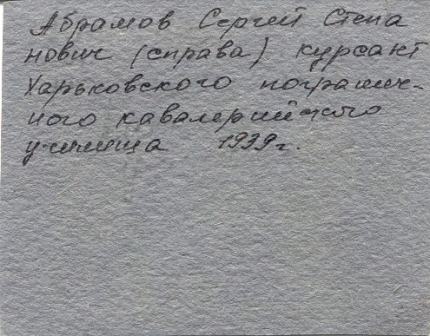 Абрамов Сергей Степа
нович (справа) курсант
Харьковского погранич-
ного кавалерийского
училища 1939г.